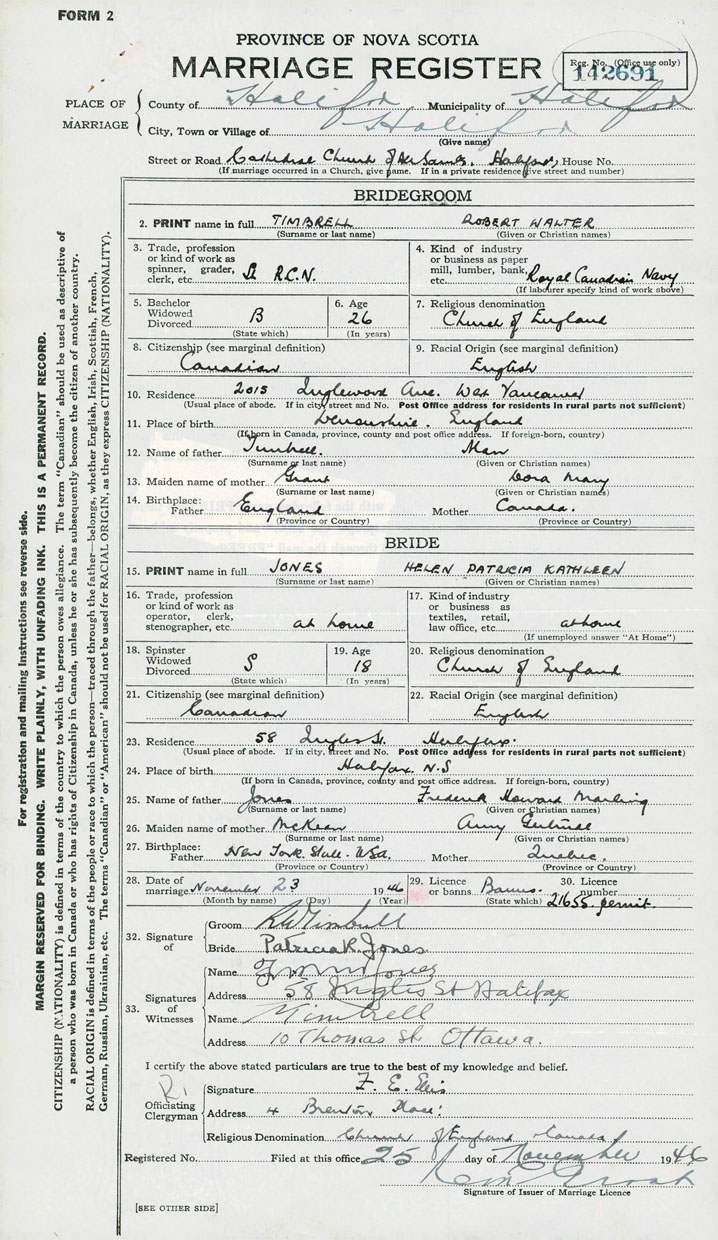 FORM 2
PROVINCE OF NOVA SCOTIA
MARRIAGE REGISTER
Reg. No. (Office use only)
142691
PLACE OF MARRIAGE
County of Halifax Municipality of Halifax
City, Town or Village of Halifax
(Give name)
Street or Road Cathedral Church of All Saints, Halifax, House No.
(If marriage occurred in a Church, give name. If in a private residence give street and number)
BRIDEGROOM
2. PRINT name in full TIMBRELL ROBERT WALTER
(Surname or last name) (Given or Christian names)
3. Trade, profession or kind of work as spinner, grader, clerk, etc. R.C.N.
4. Kind of industry or business as paper mill, lumber, bank, etc. Royal Canadian Navy
(If labourer specify kind of work above)
5. Bachelor Widowed Divorced B
(State which)
6. Age 26
(In years)
7. Religious denomination Church of England
8. Citizenship (see marginal definition) Canadian
9. Racial Origin (see marginal definition) English
10. Residence 2015 Inglewood Ave. West Vancouver
(Usual place of abode. If in city, street and No. Post Office address for residents in rural parts not sufficient)
11. Place of birth Devonshire. England
(If born in Canada, province, county and post office address. If foreign-born, country)
12. Name of father Timbrell. Alan
(Surname or last name) (Given or Christian names)
13. Maiden name of mother Grant Dora Mary
(Surname or last name) (Given or Christian names)
14. Birthplace: Father England Mother Canada.
(Province or Country) (Province or Country)
BRIDE
15. PRINT name in full JONES HELEN PATRICIA KATHLEEN
(Surname or last name) (Given or Christian names)
16. Trade, profession or kind of work as operator, clerk, stenographer, etc. at home
17. Kind of industry or business as textiles, retail, law office, etc. at home
(If unemployed answer "At Home")
18. Spinster Widowed Divorced S
(State which)
19. Age 18
(In years)
20. Religious denomination Church of England
21. Citizenship (see marginal definition) Canadian
22. Racial Origin (see marginal definition) English
23. Residence 58 Inglis St. Halifax.
(Usual place of abode. If in city, street and No. Post Office address for residents in rural parts not sufficient)
24. Place of birth Halifax N.S
(If born in Canada, province, county and post office address. If foreign-born, country)
25. Name of father Jones Frederick Howard Marling
(Surname or last name) (Given or Christian names)
26. Maiden name of mother McKean Amy Gertrude
(Surname or last name) (Given or Christian names)
27. Birthplace: Father New York. State. USA. Mother Quebec.
(Province or Country) (Province or Country)
28. Date of marriage November 23 1946
(Month by name) (Day) (Year)
29. Licence or banns Banns.
(State which)
30. Licence number 21655 permit.
32. Signature of
Groom RWTimbrell
Bride Patricia K. Jones
33. Signatures of Witnesses
Name
Address 58 Inglis St Halifax
Name Timbrell
Address 10 Thomas St. Ottawa.
I certify the above stated particulars are true to the best of my knowledge and belief.
Officiating Clergyman
Signature F. E. Ellis
Address 4 Brenton Place.
Religious Denomination Church of England Canada
Registered No. Filed at this office 25 day of November 1946
Signature of Issuer of Marriage Licence
[SEE OTHER SIDE]
For registration and mailing instructions see reverse side.
MARGIN RESERVED FOR BINDING. WRITE PLAINLY, WITH UNFADING INK. THIS IS A PERMANENT RECORD.
CITIZENSHIP (NATIONALITY) is defined in terms of the country to which the person owes allegiance. The term "Canadian" should be used as descriptive of
a person who was born in Canada or who has rights of Citizenship in Canada, unless he or she has subsequently become the citizen of another country.
RACIAL ORIGIN is defined in terms of the people or race to which the person—traced through the father—belongs, whether English, Irish, Scottish, French,
German, Russian, Ukrainian, etc. The terms "Canadian" or "American" should not be used for RACIAL ORIGIN, as they express CITIZENSHIP (NATIONALITY).